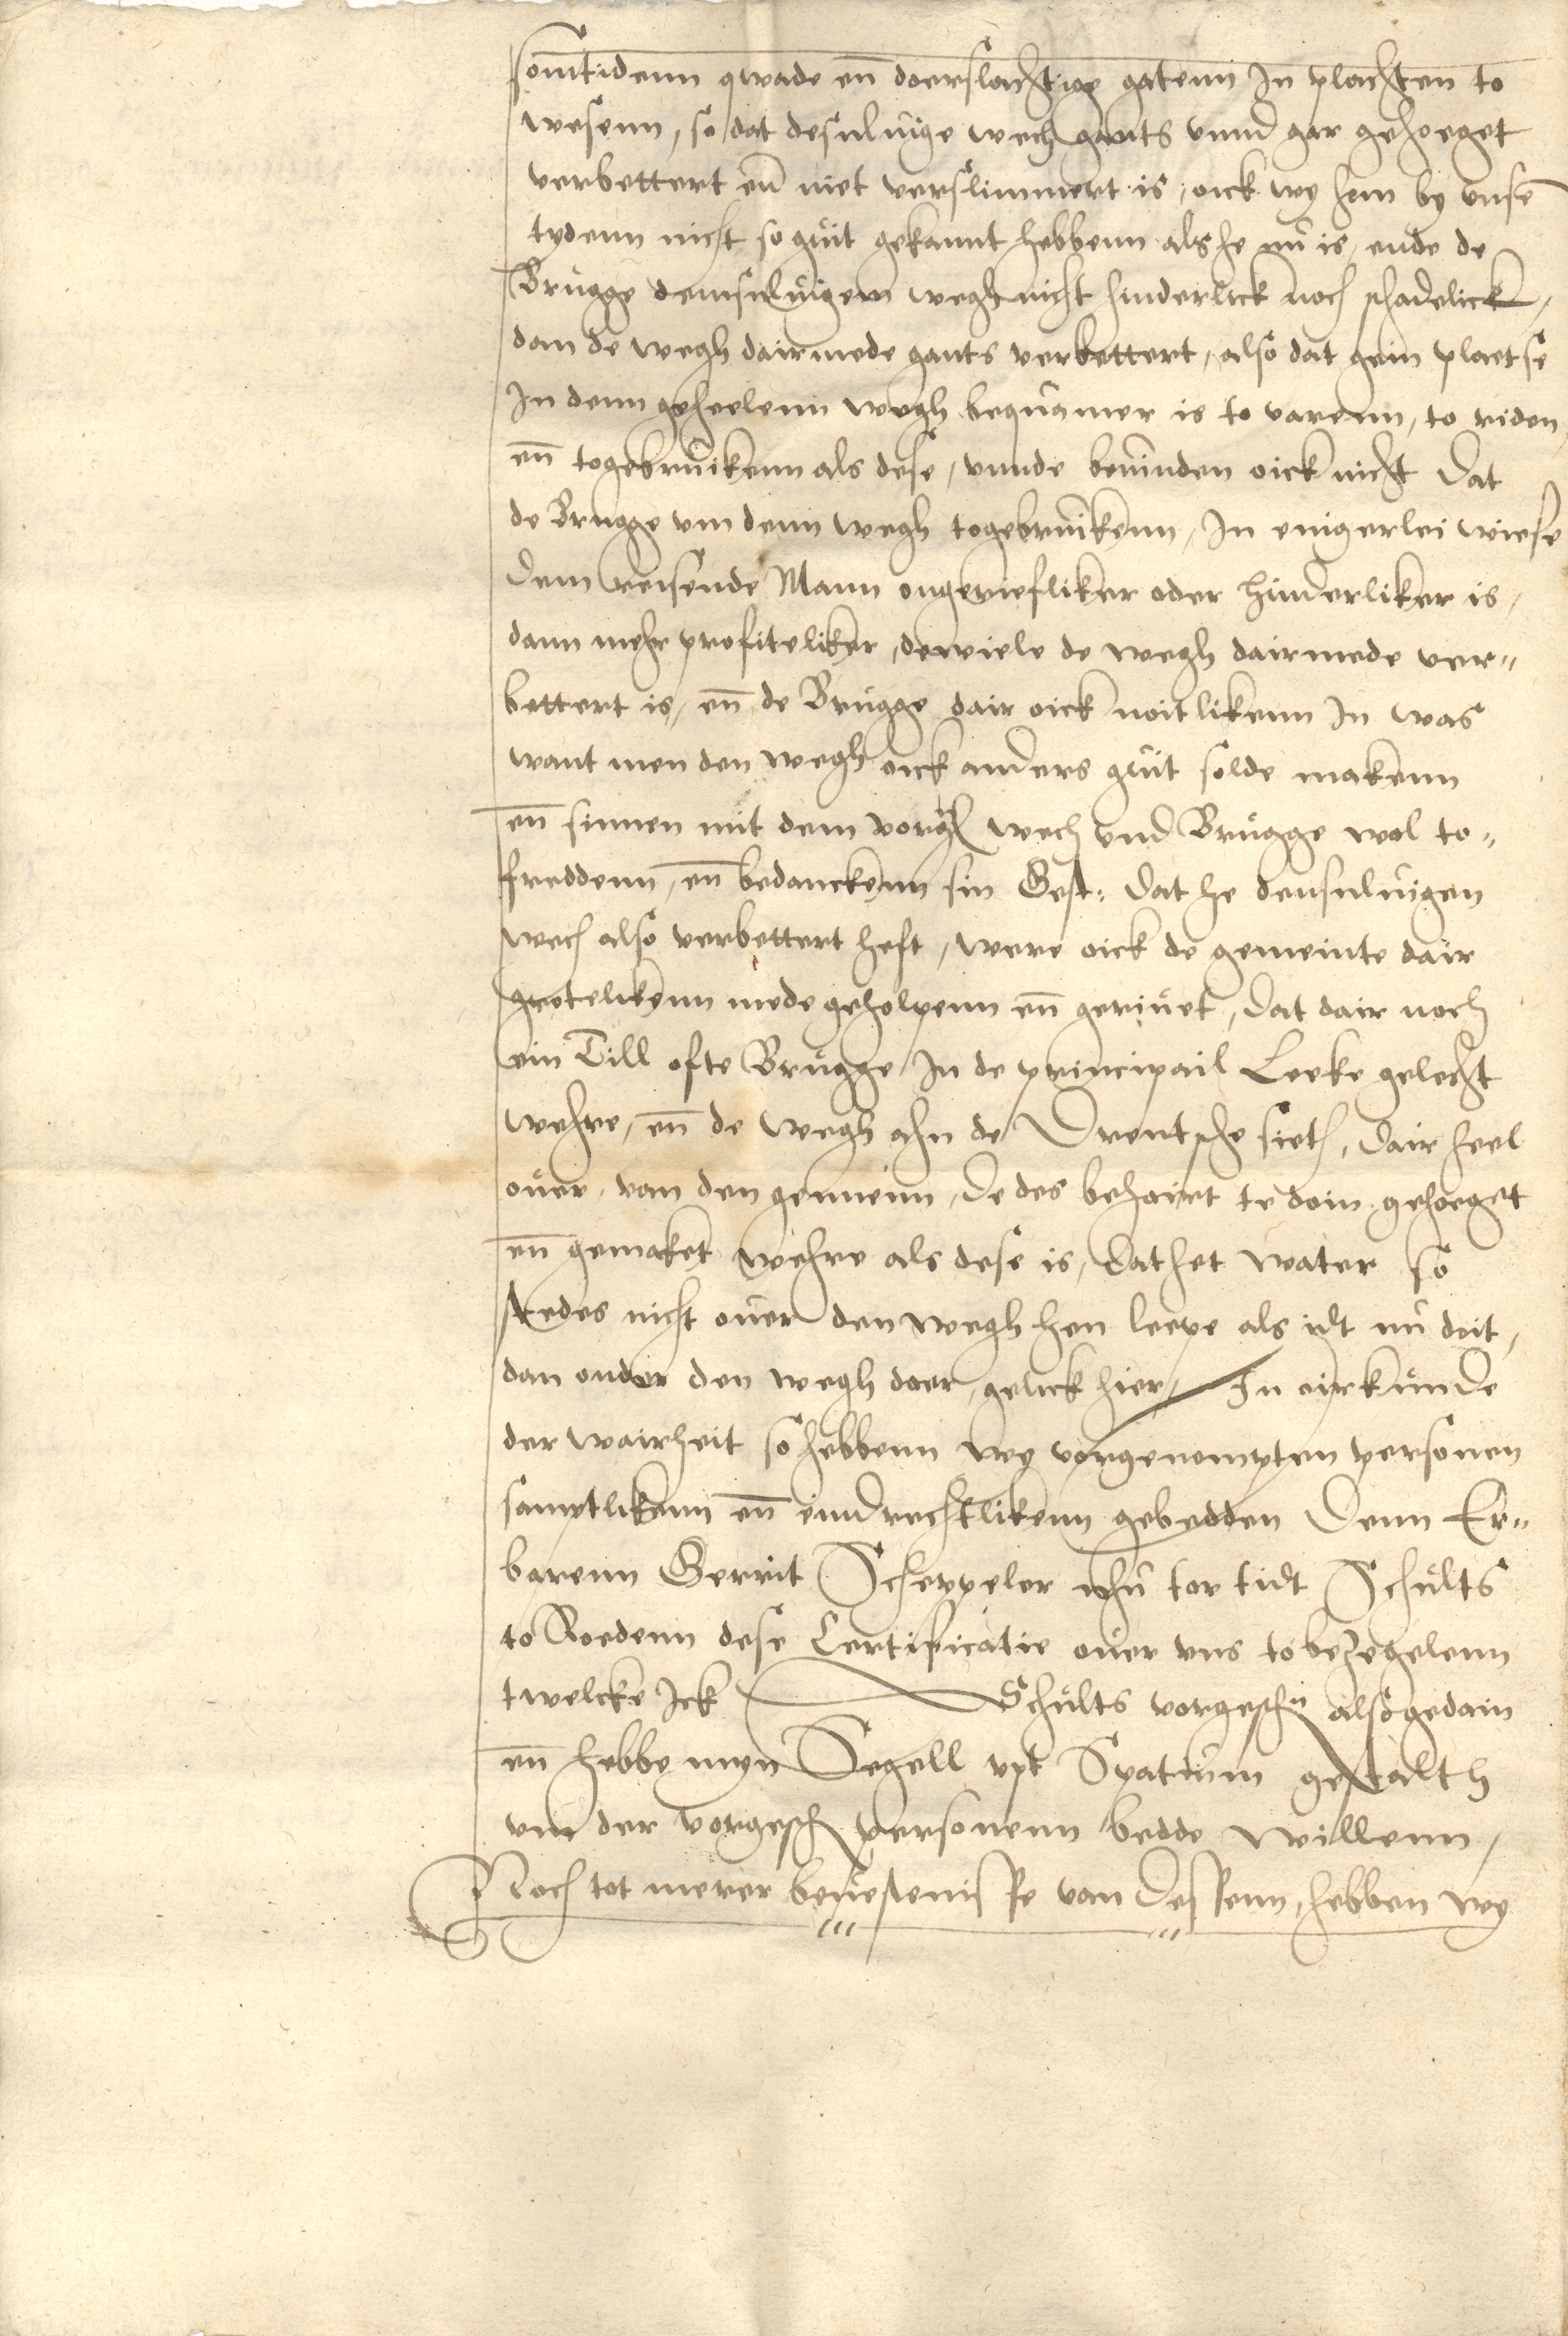 somtidenn qwade en̄ doerslachtige gatenn in plachten to
wesenn, so dat desuluige wech gants vnnd gar gehoeget
verbettert en̄ niet verslimmert is, oick wy hem by vnsē
tydenn nicht so guit gekannt hebbenn als he nu is, ende de
Brugge demsuluigem wegh nicht hinderlick noch schadelick,
dan de wegh dairmede gants verbettert, also dat gein plaetse
In denn geheelenn wegh bequamer is to varenn, to riden
en̄ togebruikenn als dese, vnnde beuinden oick nicht dat
de Brugge vm denn wegh togebruikenn, In enigerlei wiese
dem reisende Mann ongeriefliker oder hinderliker is,
dann mehr profiteliker, dewiele de wegh dairmede ver„
bettert is, en̄ de Brugge dair oick noitlikenn In was
want men den wegh oick anders guit solde makenn
en̄ sinnen mit dem vorg wech vnd Brugge wol to„
freddenn, en̄ bedanckenn sin Gest: dat he densuluigen
wech also verbettert heft, were oick de gemeinte dair
grotelikenn mede geholpenn en̄ geriuet, dat dair noch
ein Till ofte Brugge In de principail Leeke gelecht
wehre, en̄ de wegh ahn de Drentsche sieth, dair heel
ouer, van den gennenn, de des behoirt te doin gehoeget
en̄ gemaket wehre als dese is, dat het water so
stedes nicht ouer den wegh hen leepe als idt nu doit,
dan onder den wegh doer, gelick hier, In oirkunde
der wairheit so hebbenn wy vorgenompten personen
samptlikenn en̄ eindrechtlikenn gebedden Denn Er„
barenn Gerrit Scheppeler nhu tor tidt Schults
to Roedenn dese Certificatie ouer vns to bezegelenn
twelcke Ick Schults vorgeschr alsogedain
en̄ hebbe myn Segell vpt Spatium gestalth
vm der vorgesch personenn bedde willenn,
Noch tot merer beuestenisse van dessenn, hebben wy